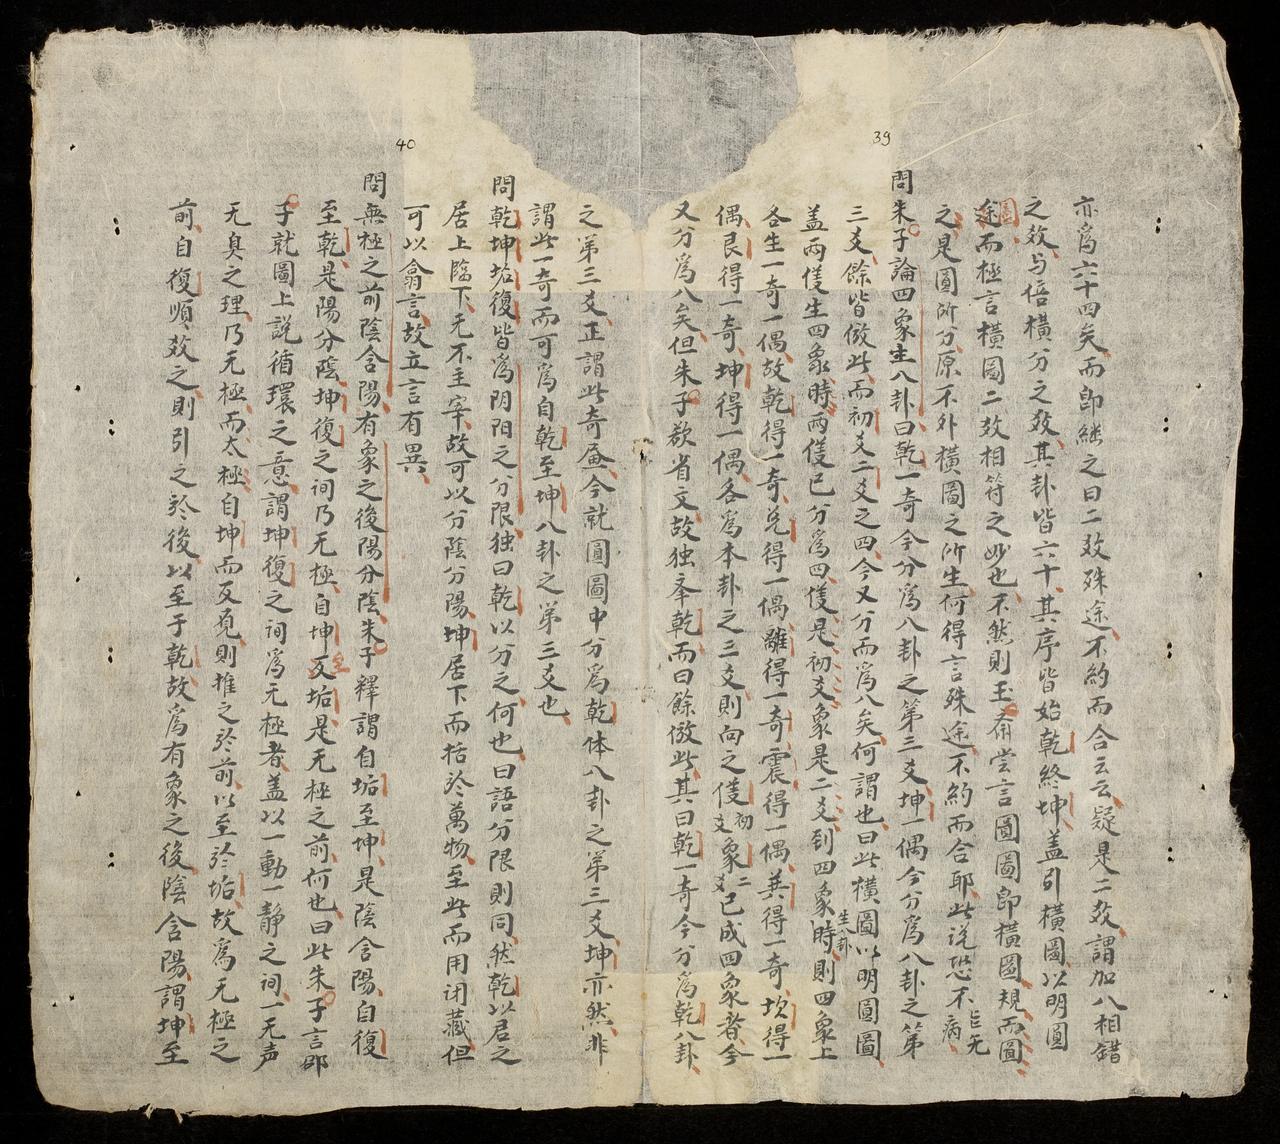 39
亦爲六十四矣而卽継之曰二效殊途不約而合云云疑是二效謂加八相錯
之效与倍橫分之效其卦皆六十其序皆始乾終坤盖引橫圖以明圓
途而極言橫圖二效相符之妙也不然則玉斎尝言圓圖卽橫圖規而圓
之是圓圖所分原不外橫圖之所生何得言殊途不約而合耶此说恐不无病
問朱子論四象生八卦曰乾一奇今分爲八卦之第三爻坤一偶今分爲八卦之第
三爻餘皆倣此而初爻二爻之四今又分而爲八矣何謂也曰此橫圖以明圓圖
盖兩儀生四象時兩儀已分爲四儀是初爻象是二爻到四象生八卦時則四象上
各生一奇一偶故乾得一奇兌得一偶離得一奇震得一偶巽得一奇坎得一
偶艮得一奇坤得一偶各爲本卦之三爻則向之儀初爻象二爻已成四象者今
又分爲八矣但朱子欲省文故独奉乾而曰餘倣此其曰乾一奇今分爲乾八卦
之第三爻正謂此奇今就圓圖中分爲乾体八卦之第三爻坤亦然非
謂此一奇而可爲自乾至坤八卦之第三爻也
問乾坤垢復皆爲阴阳之分限独曰乾以分之何也曰語分限則同然乾以君之
居上臨下无不主宰故可以分陰分陽坤居下而括於萬物至此而用闭藏但
可以翕言故立言有異
40
問無極之前陰含陽有象之後陽分陰朱子釋謂自垢至坤是陰含陽自復
至乾是陽分陰坤復之间乃无極自坤反至垢是无極之前何也曰此朱子言邵
子就圖上説循環之意謂坤復之间爲无極者盖以一動一靜之间一无声
无臭之理乃无極而太極自坤而反覓則推之於前以至於垢故爲无極之
前自復順效之則引之於後以至于乾故爲有象之後陰含陽謂坤至